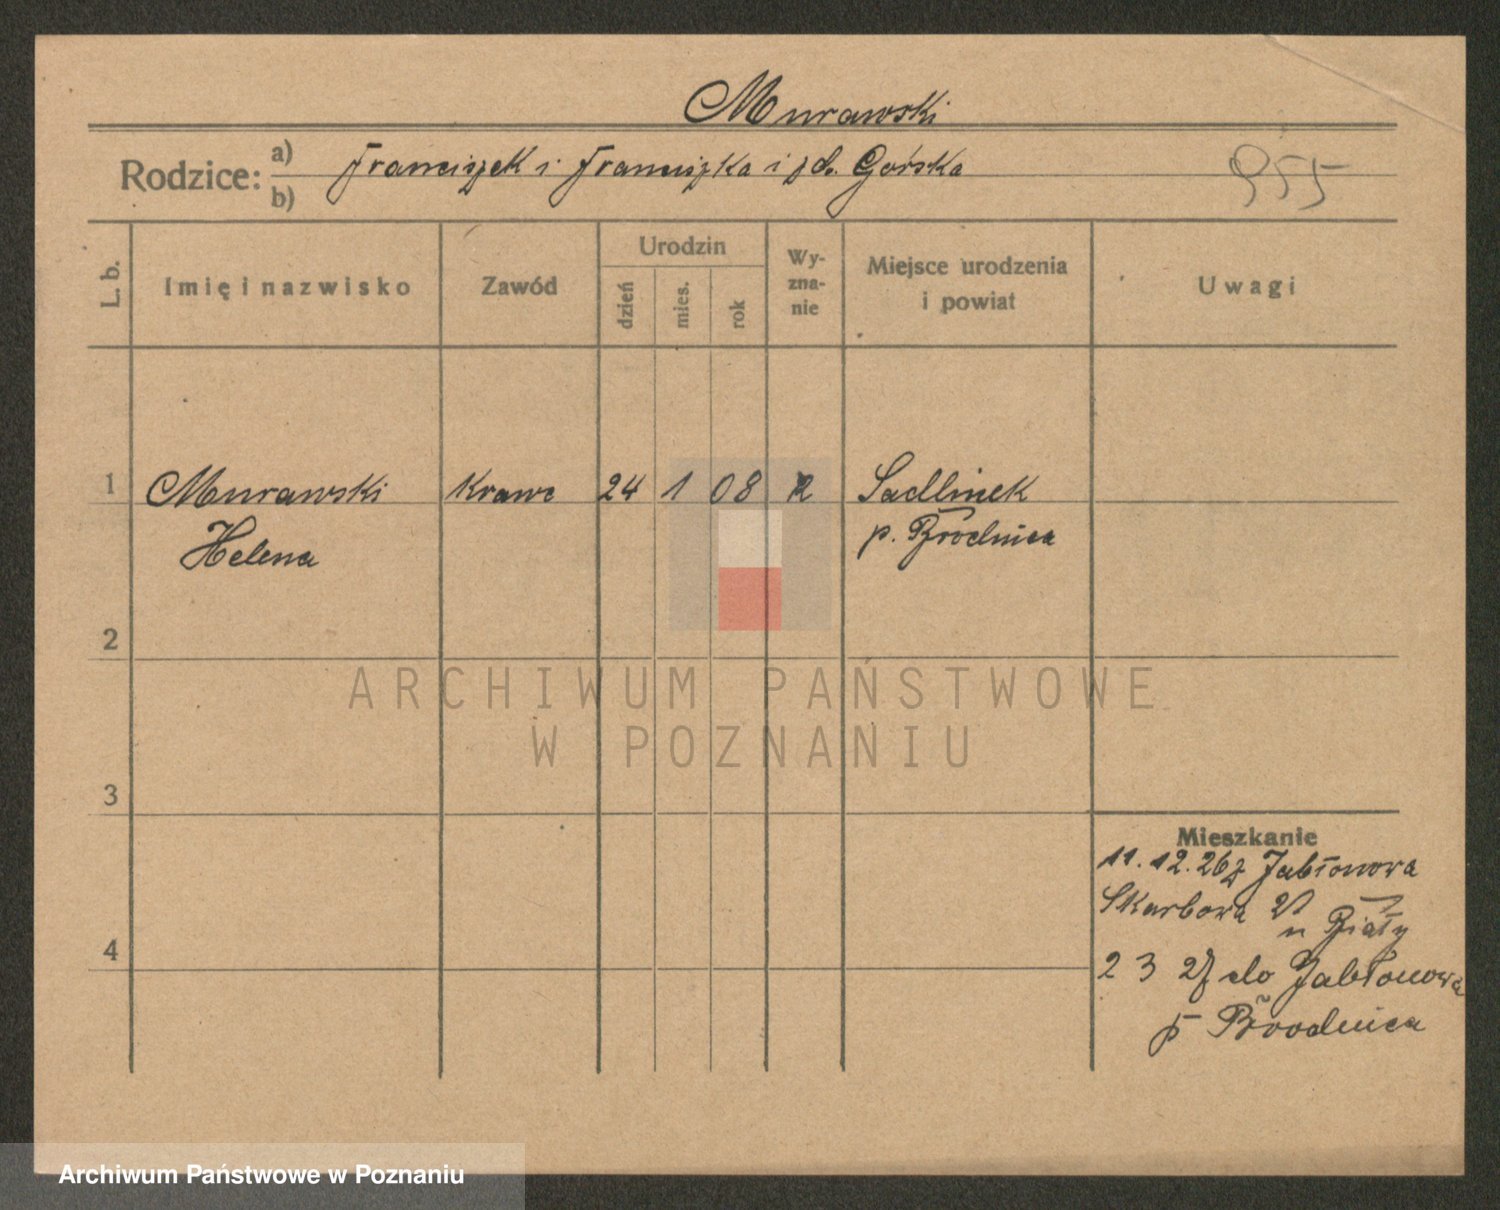 Murawski
Rodzice: a) Franciszek i Franciszka i zd. Górska
b)
955
L. b.
Imię i nazwisko
Zawód
Urodzin
dzień
mies.
rok
Wy-
zna-
nie
Miejsce urodzenia
i powiat
Uwagi
1 Murawski Krawc 24 1 08 Sadlinek
Helena p. Brodnica
2
ARCHIWUM PAŃSTWOWE
W POZNANIU
3
Mieszkanie
11. 12. 26 z Jabłonowa
Skarbowa 21
u Biały
4
2 3 27 do Jabłonowa
p Brodnica
Archiwum Państwowe w Poznaniu